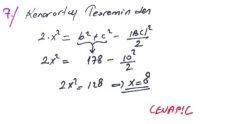 7-) Kenarortay Teoreminden
2.x² = b² + c² - |BC|²/2
2x² = 178 - 10²/2
2x² = 128 ⇒ x = 8
CEVAP: C